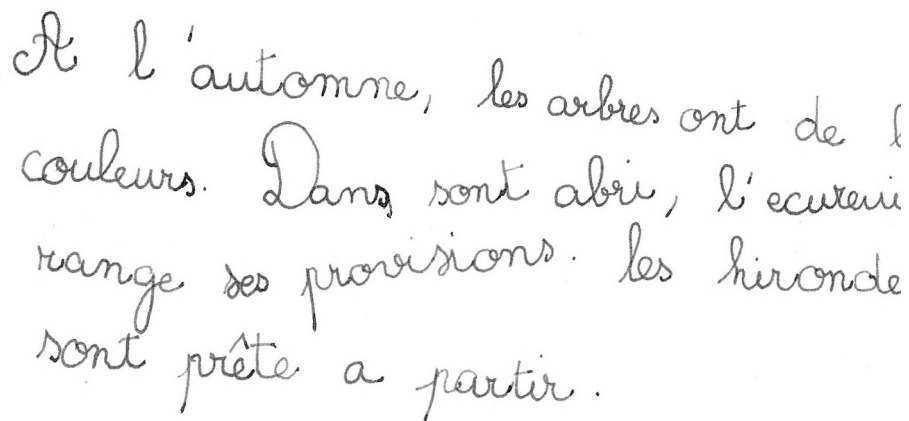 A l'automne, les arbres ont de
couleurs. Dans sont abri, l'ecureui
range ses provisions. les hironde
sont prête a partir.